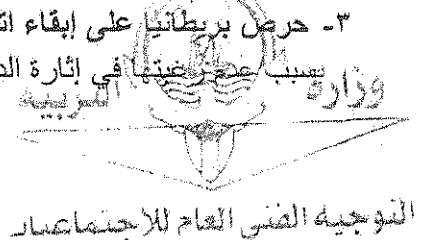 ٣- حرص بريطانيا على إبقاء
بسبب عدم رغبتها في إثارة
وزارة التربية
التوجيه الفني العام للاجتماعيات